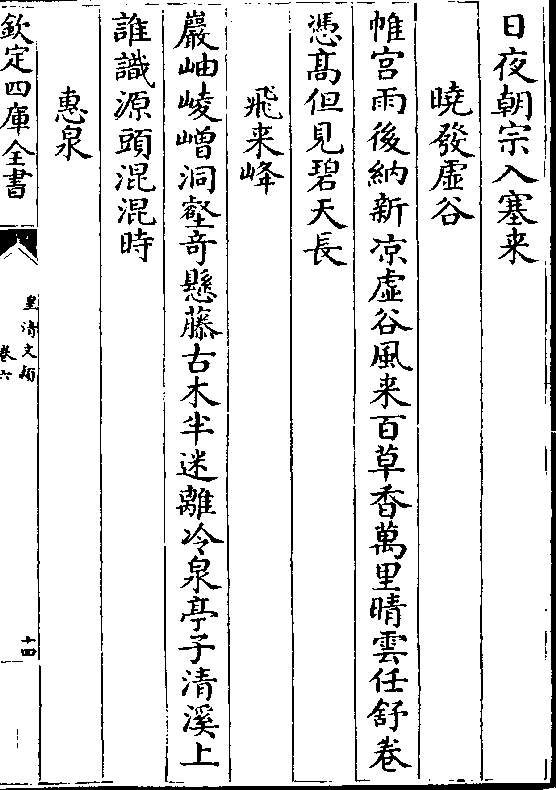 日夜朝宗入塞来
曉發虛谷
帷宫雨後納新凉虛谷風来百草香萬里晴雲任舒卷
憑髙但見碧天長
飛来峰
巖岫崚嶒洞壑竒懸藤古木半迷離冷泉亭子清溪上
誰識源頭混混時
惠泉
欽定四庫全書
皇清文穎
卷六
十四